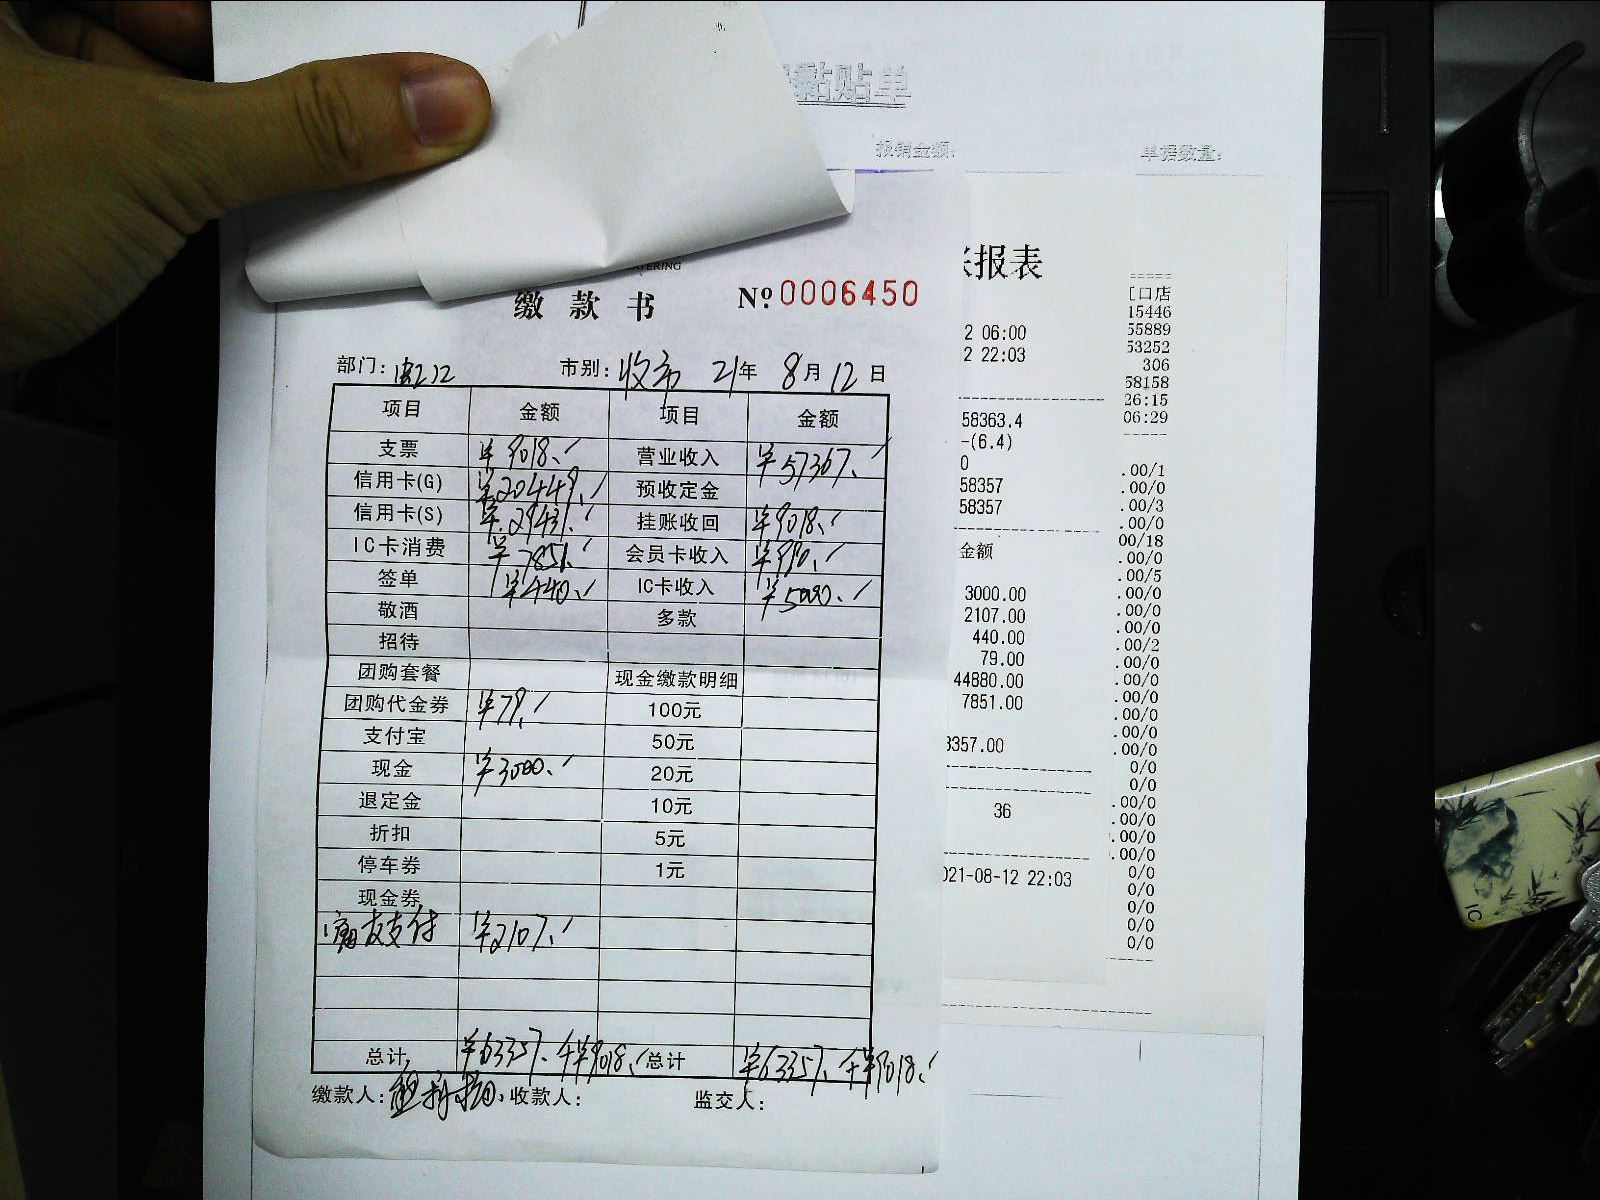 黏贴单
报销金额:
单据数量:
ATERING
缴款书
№ 0006450
部门: 虹口 市别: 收市 21年 8月12日
项目 金额 项目 金额
支票 ¥9018. 营业收入 ¥57367.
信用卡(G) ¥20449. 预收定金
信用卡(S) ¥29431. 挂账收回 ¥9018.
IC卡消费 ¥7851. 会员卡收入 ¥990.
签单 ¥440. IC卡收入 ¥5000.
敬酒 多款
招待
团购套餐 现金缴款明细
团购代金券 ¥79. 100元
支付宝 50元
现金 ¥3000. 20元
退定金 10元
折扣 5元
停车券 1元
现金券
支付 ¥2107.
总计 ¥63357. +¥9018. 总计 ¥63357. +¥9018.
缴款人: 收款人: 监交人:
报表
2 06:00
2 22:03
58363.4
-(6.4)
0
58357
58357
金额
3000.00
2107.00
440.00
79.00
44880.00
7851.00
3357.00
36
021-08-12 22:03
口店
15446
55889
53252
306
58158
26:15
06:29
.00/1
.00/0
.00/3
.00/0
00/18
.00/0
.00/5
.00/0
.00/0
.00/0
.00/2
.00/0
.00/0
.00/0
.00/0
.00/0
.00/0
0/0
0/0
.00/0
.00/0
.00/0
.00/0
0/0
0/0
0/0
0/0
0/0
IC